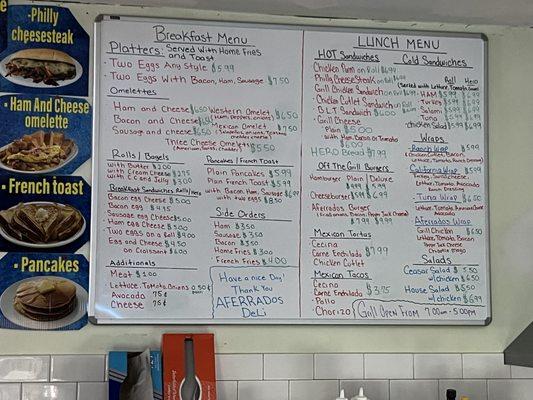 -Philly
cheesesteak
-Ham And Cheese
omelette
-French toast
-Pancakes
Breakfast Menu
Platters: Served with Home Fries
and Toast
· Two Eggs Any Style $5.99
· Two Eggs With Bacon, Ham, Sausage $7.50
Omelettes
Ham and Cheese $6.50
Bacon and Cheese
Sausage and cheese $6.50
Western Omelet $6.50
(Ham, Peppers, onions)
Mexican Omelet $7.50
Three Cheese Omelets $5.50
(American, Swiss, Chedder)
Rolls / Bagels
With Butter $2.00
with Cream Cheese $2.75
With C.C and Jelly $3.00
Breakfast Sandwiches Rolls/Hero
Bacon egg Cheese $5.00
Bacon Egg $4.45
Sausage egg Cheese $5.00
Ham egg Cheese $5.00
Two Eggs on a Roll $3.00
Egg and Cheese $4.50
on Croissant $6.00
Additionals
Meat $1.00
Lettuce, Tomato, Onions 0.50¢
Avocado 75¢
Cheese 75¢
Pancakes / French Toast
Plain Pancakes $5.99
Plain French Toast $5.99
with Bacon, Ham, Sausage $6.99
with two eggs $8.50
Side Orders
Ham $3.50
Sausage $3.50
Bacon $3.50
Home Fries $3.00
French Fries $4.00
Have a nice Day!
Thank You
AFERRADOS
Deli
LUNCH MENU
HOT Sandwiches
Chicken Parm on Roll
Philly Cheese Steak on Roll
Grill Chicken Sandwich on Roll
Chicken Cutlet Sandwich on Roll
B.L.T Sandwich $6.00
Grill Cheese
Plain $5.00
With Ham, Bacon or Tomato
$6.00
HERO Bread $7.99
Off The Grill Burgers
Hamburger Plain / Deluxe
Cheeseburger
Aferrados Burger
$7.99 $9.99
Mexican Tortas
Cecina
Carne Enchilada $7.99
Chicken Cutlet
Mexican Tacos
Cecina
Carne Enchilada $3.75
· Pollo
· Chorizo
Grill Open From 7:00am - 5:00pm
Cold Sandwiches
Roll Hero
(Served with Lettuce, Tomato, Onion)
HAM
Turkey
Salami
Tuna
chicken Salad
Wraps
Ranch Wrap
(Chicken Cutlet, Bacon,
Lettuce, Tomato, Ranch Dressing)
California Wrap $5.99
Lettuce, Tomato, Avocado
Ranch Dressing
Tuna Wrap $6.50
Avocado
Aferrados Wrap
Grill Chicken $6.50
Lettuce, Tomato, Bacon
Pepper Jack Cheese
Salads
Ceasar Salad $5.50
w/chicken $6.50
House Salad $5.50
w/chicken $6.99